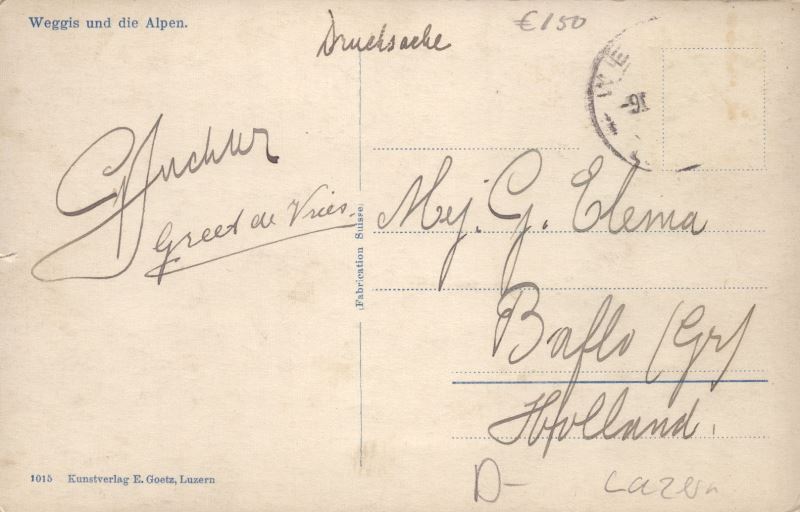 Weggis und die Alpen.
Drucksache
€150
Greet de Vries.
Mej. G. Elema
Baflo (Gr)
Holland.
Fabrication Suisse
1015 Kunstverlag E. Goetz, Luzern
D-
Luzern